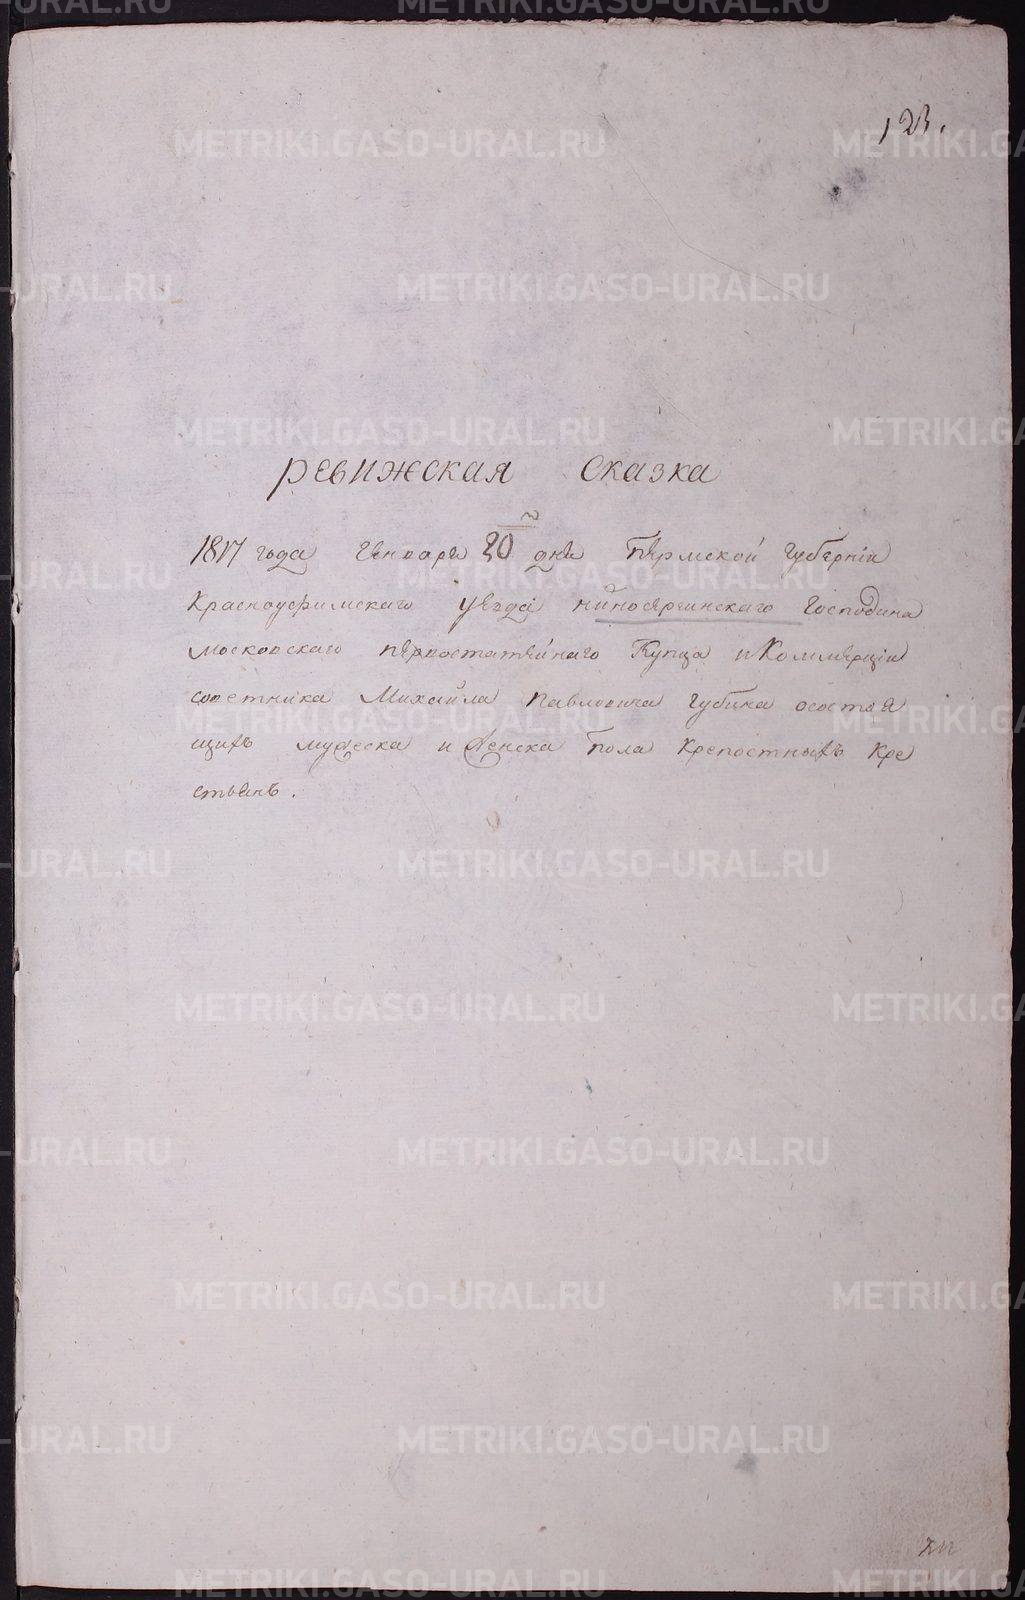 123.
Ревижская сказка
1817 года Генваря 20 дня Пермской губерніи
Красноуфимскаго уезда Нижносергинскаго Господина
московскаго первостатейнаго Купца и Коммерціи
советника Михайла Павловича Губина осостоя
щихъ мужеска и женска пола крепостныхъ кре
стьянъ.
METRIKI.GASO-URAL.RU